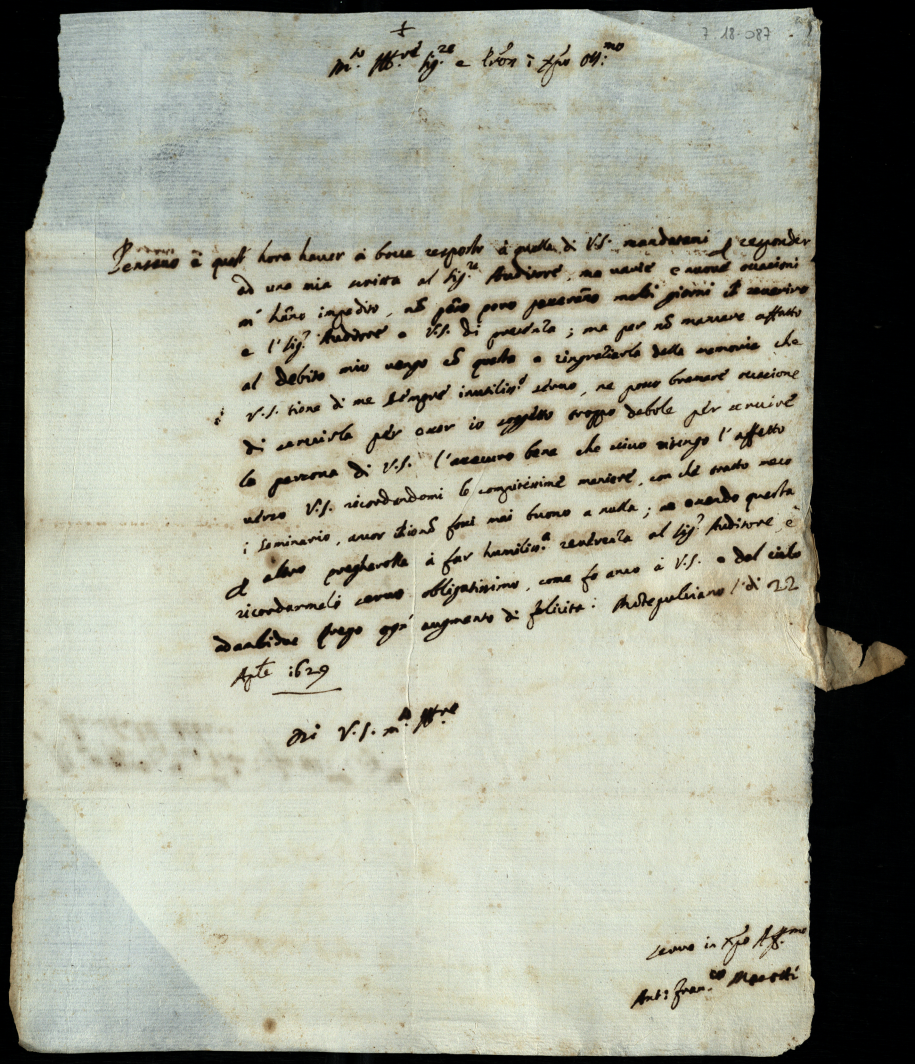 7.18-087
+
M.to Ill.re Sig.re e Pron i Xpo Oss.mo
Pensavo à quest hora haver à bocca resposto à quella di V.S. mandatami p responder
ad una mia scritta al Sig.re Auditore, ma varie e nuove occasioni
m' hãno impedito, nõ però pono passerãno molti giorni chè reverirò
e l'Sig.r Auditore e V.S. di presenza; ma per nõ mancare affatto
al debito mio vengo cõ questa a ringratiarla della memoria che
V.S. tiene di me sempre inutiliss.o servo, ne posso bramare occasione
di servirla per esser io soggetto troppo debole per servire
la persona di V.S. l'assicuro bene che vivo ritengo l'affetto
verso V.S. ricordandomi le compitissime maniere, con che trattò meco
i Seminario, ancor chè nõ fossi mai buono a nulla; ne essendo questa
p altro pregherolla à far humiliss.a reverenza al Sig.r Auditore, e
ricordarmeli servo obligatissimo, come fo anco à V.S. e dal cielo
adambidue prego ogni augmento di felicità: Mõtepulciano l' dì 22
Aple 1629
Di V.S. m.to Ill.re
servo in Xpo Aff.mo
Ant: Fran.co